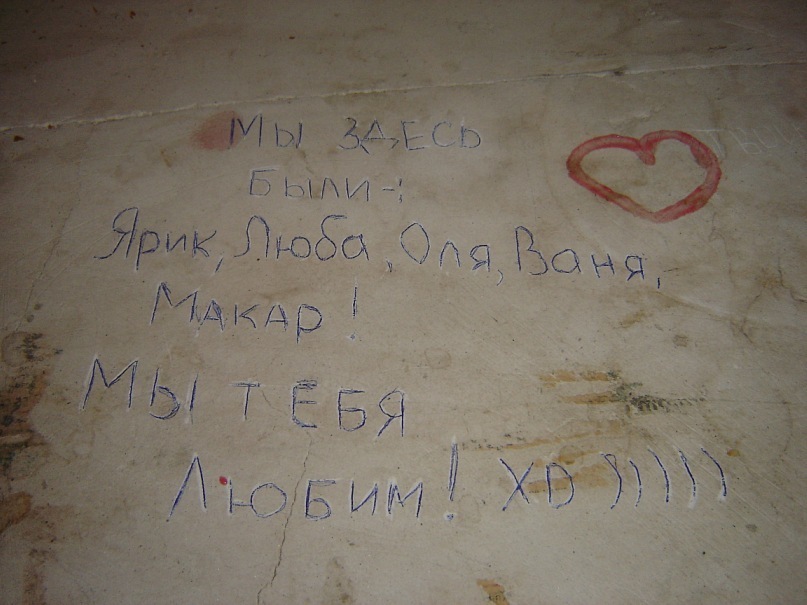 Мы здесь
были-:
Ярик, Люба, Оля, Ваня,
Макар!
Мы тебя
Любим! XD )))))